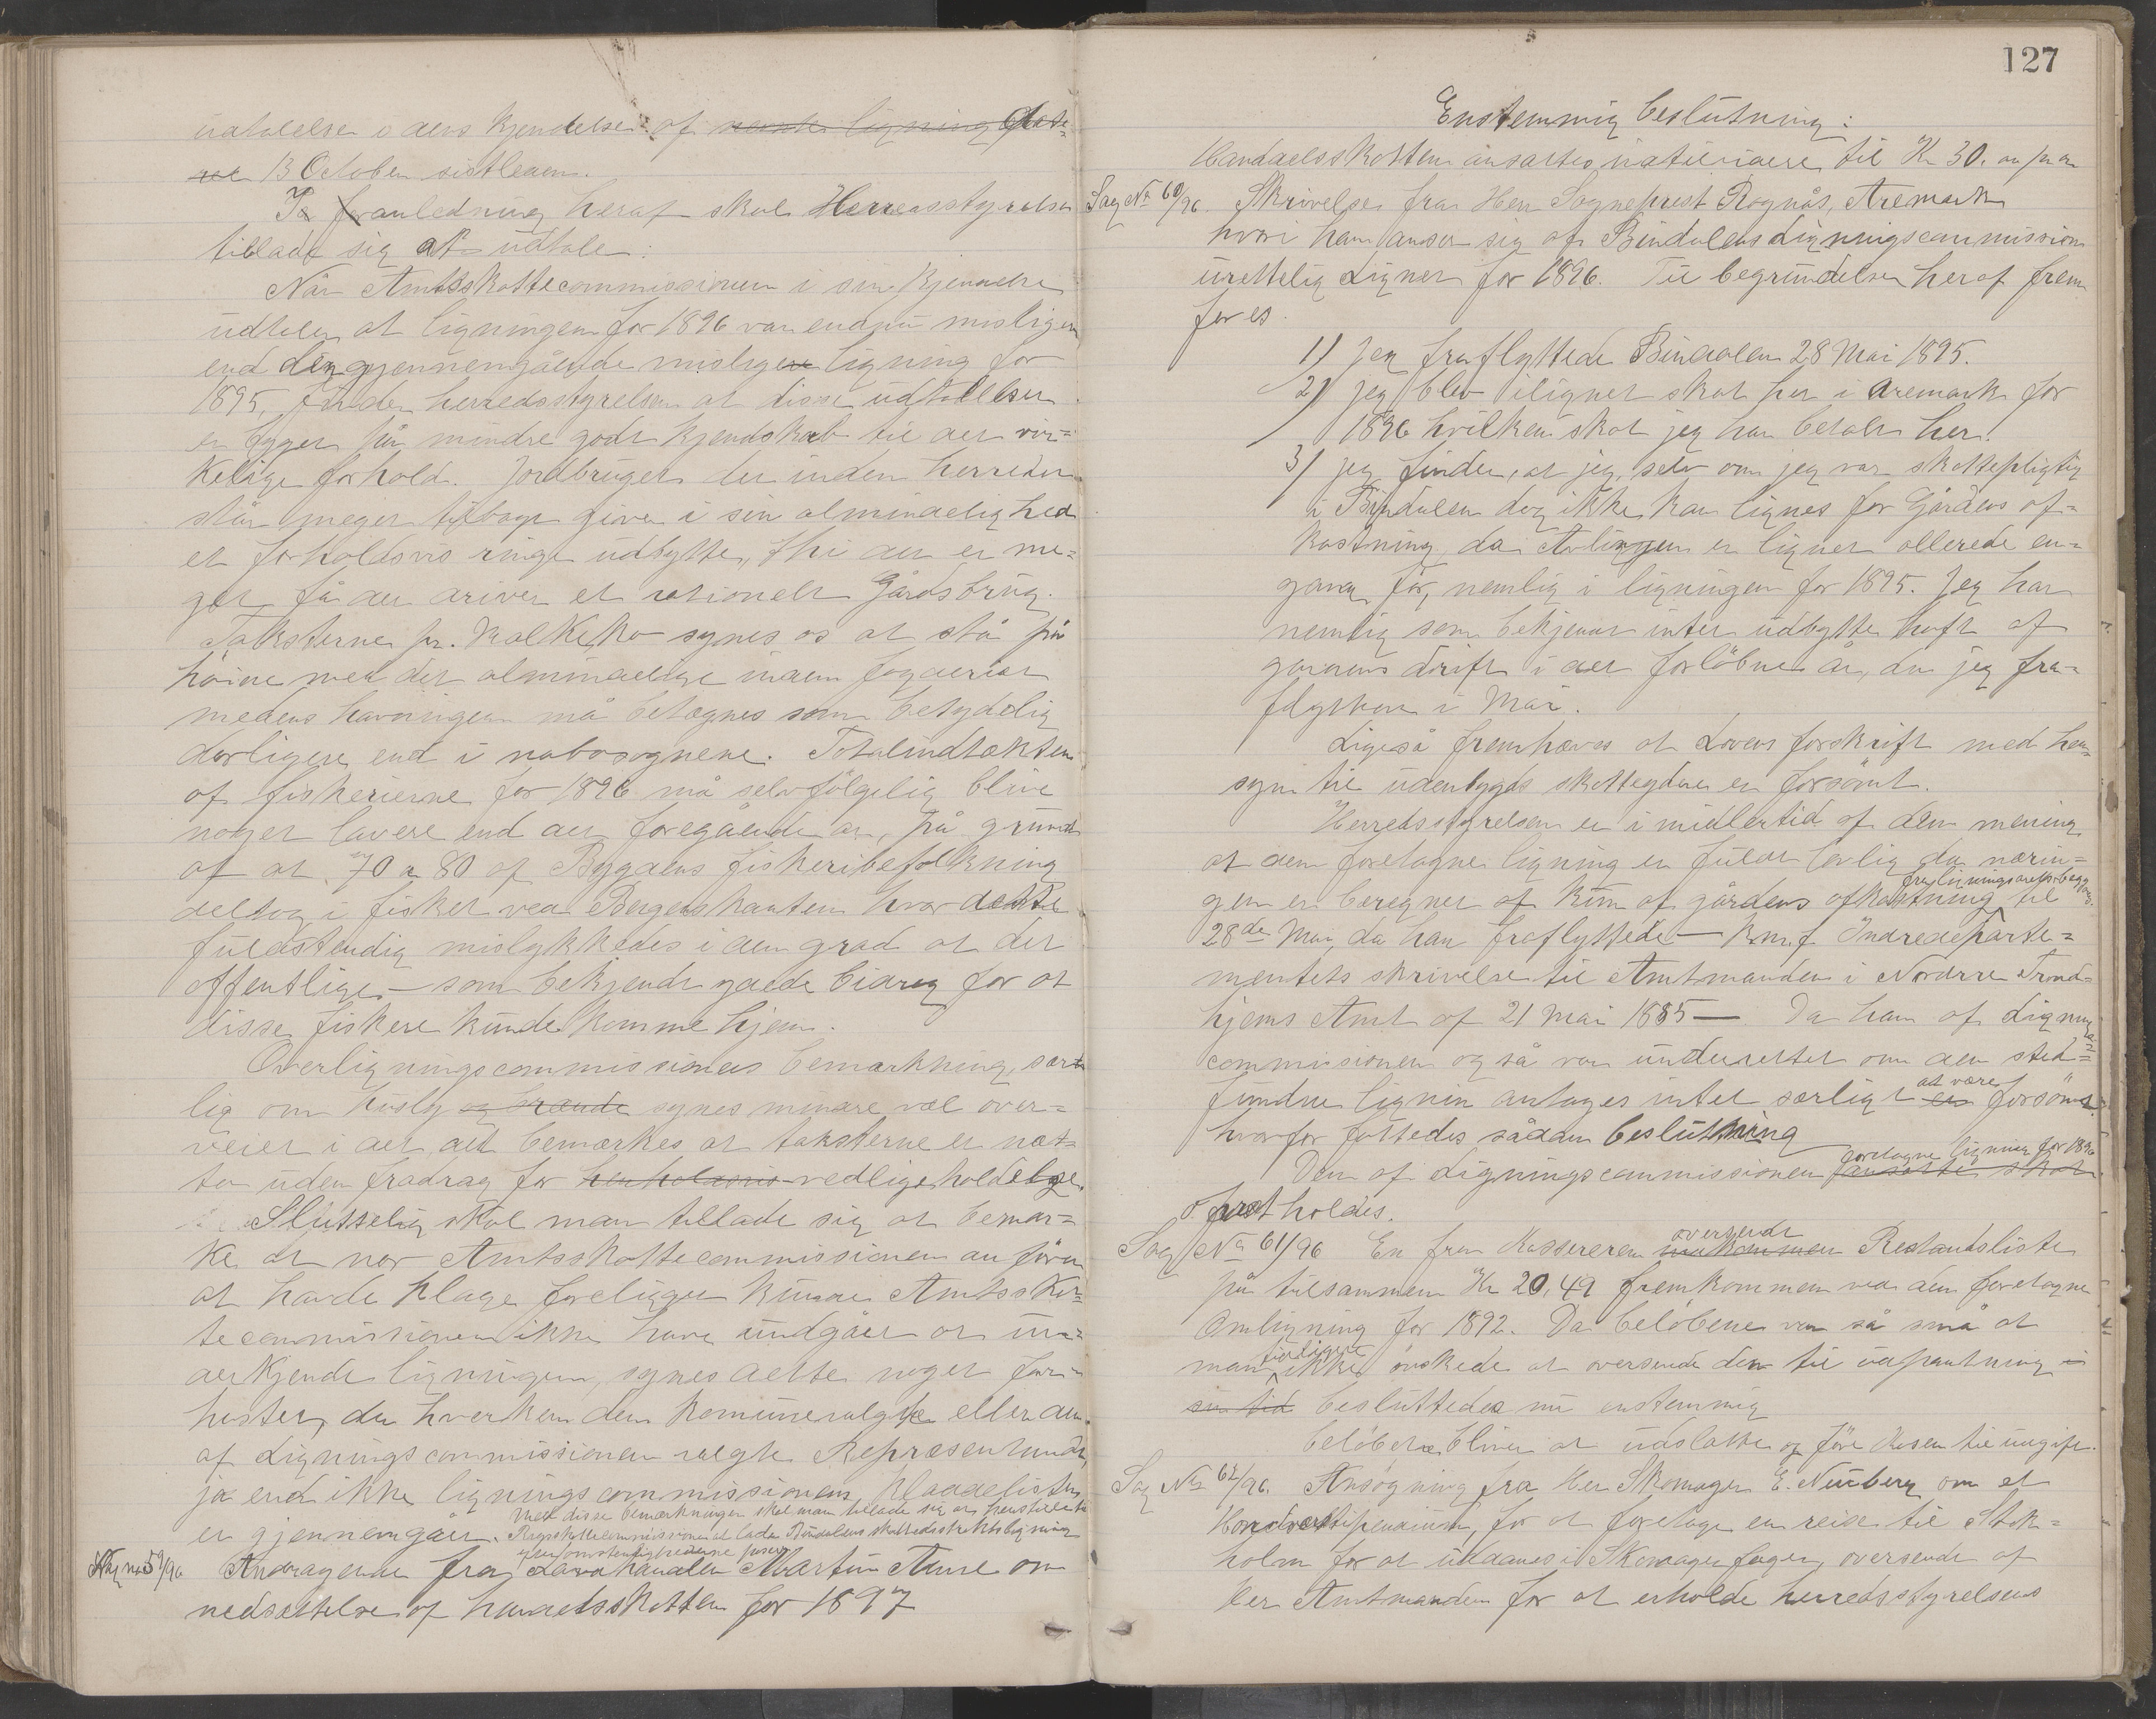 udtalelse i dens kjendelse af næste ligning date-
ret 13 October sistleden.
I foranledning heraf skal Herredsstyrelsen
tillade sig at udtale:
Når Amtsskattecommissionen i sin kjendelse
udtaler at ligningen for 1896 var endnu misligere
end den gjennemgående misligere ligning for
1895, finder herredsstyrelsen at disse udtallelser
er bygget på mindre godt kjendskab til det vir-
kelige forhold. Jordbruget der inden herredet
står meget tilbage giver i sin almindelighed
et forholdsvis ringe udbytte, thi der er me-
get få der driver et rationelt Gårdsbrug.
Taksterne pr. Malkeko synes os at stå på
höine med det almindelige inden fogderiet
medens havningen må betegnes som betydelig
dårligere end i nabosognene. Totalindtækten
af fiskerierne for 1896 må selvfölgelig blive
noget lavere end det foregående år, på grund
af at 70 a 80 af Bygdens fiskeribefolkning
deltog i fisket ved Bergenskanten hvor dette
fuldstendig mislykkedes i den grad at det
offentlige - som bekjendt gjorde bidrag for at
disse fiskere kunde komme hjem.
Overligningscommissionens bemærkning, sær-
lig om husly og brænde synes mindre vel over-
veiet i det, det bemærkes at taksterne er net-
to uden fradrag for henholdsvis vedligeholdelse.
Slutselig skal man tillade sig at bemær-
ke at nor Amtsskattecommissionen anförer
at havde klage foreligget kunne Amtsskat-
tecommissionen ikke have undgået at un-
derkjende ligningen, synes dette noget for-
hastet, da hverken den komunevalgte eller den
af Ligningscommissionen valgte Repræsentant,
ja end ikke ligningscommissionens klagelister
er gjennemgået. Med disse bemærkninger skal man tillade sig at henstille til
Rigsskattecommissionen at lade Bindalens skattedistrikts ligning
Sag No 59/96 Andragende fra Lavahandler Martin Aune om
nedsættelse af handelsskatten for 1897
127
Enstemmig beslutning:
Handelsskatten ansættes natürligvis til Kr 30. an pr an
Sag No 60/96. Skrivelse fra Herr Sogneprest Rognås, Aremark
hvori han anser sig af Bindalens Ligningscommission
urettelig Lignet for 1896. Til begrundelse heraf frem
föres.
1) Jeg fraflyttede Bindalen 28 Mai 1895.
2) jeg blev ilignet skat her i Aremark for
1896 hvilken skat jeg har betalt her.
3) jeg finder, at jeg, selv om jeg var skattepligtig
i Bindalen dog ikke kan lignes for Gårdens af-
kastning, da Avlingen er lignet allerede en-
gang för, nemlig i ligningen for 1895. Jeg har
nemlig som bekjendt intet udbytte haft af
gårdens drift i det forlöbne år, da jeg fra-
flyttede i Mai.
Ligeså fremhæves at Lovens forskrift med hen-
syn til udenbygds skatteydere er forsömt.
Herredsstyrelsen er i midlertid af den mening
at den foretagne ligning er fuldt lovlig da nærin-
gen er beregnet af kun af gårdens afkastning fra ligningsårets begyn. til
28de Mai, da han fraflyttede - kmf Indredeparte-
mentets skrivelse til Amtmanden i Nordre Trond-
hjems Amt af 21 Mai 1885 - Da han af Lignings-
commissionen også var underrettet om den sted-
fundne lignin antages intet særligt er at være forsömt
hvorfor fattedes sådan beslutning
Den af Ligningscommissionen ansatte skat foretagne ligning for 1896
fastholdes.
Sag No 61/96 En fra Kassereren oversendt Restandsliste
på tilsammen Kr 20,49 fremkommen ved den foretagne
Omligning for 1892. Da belöbene var så små at
man tidligere ikke önskede at oversende den til udpantning i
sin tid besluttedes nu enstemmig
belöbene bliver at udslatte og före Kasen til udgift.
Sag No 62/96. Ansögning fra Herr Skomager E. Nürberg om et
Handverkstipendium, for at foretage en reise til Stok-
holm for at uddannes i Skomagerfaget, oversendt af
Herr Amtmanden for at erholde herredsstyrelsens